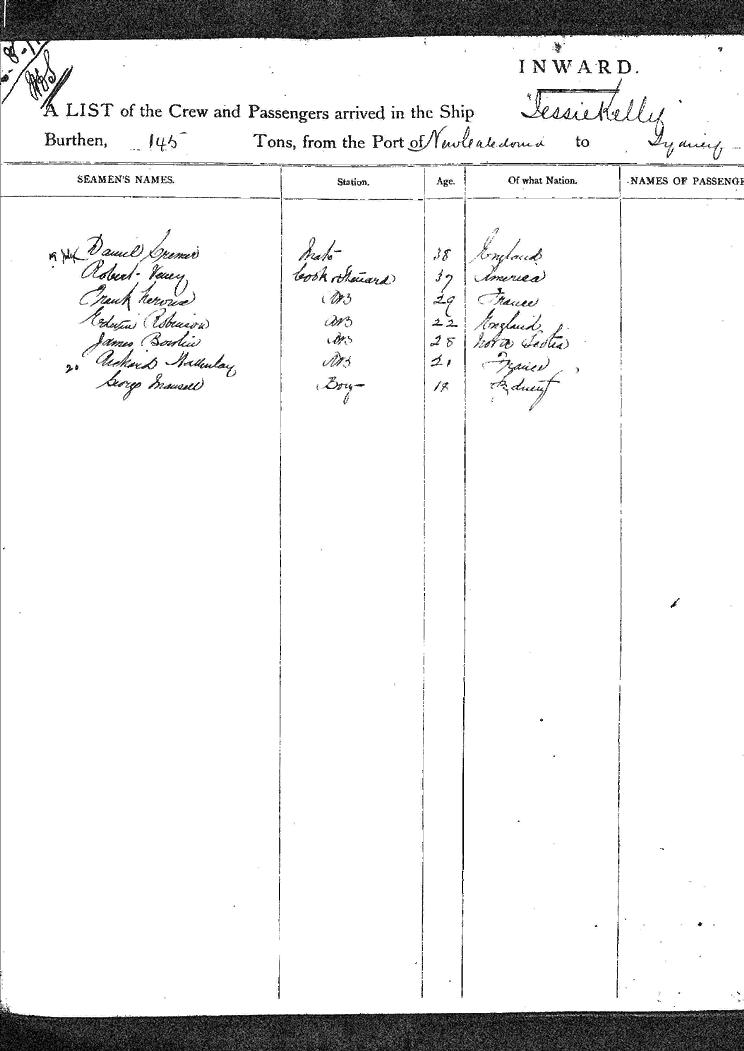 INWARD.
A LIST of the Crew and Passengers arrived in the Ship Jessie Kelly
Burthen, 145 Tons, from the Port of New Caledonia to Sydney
SEAMEN'S NAMES. Station. Age. Of what Nation. NAMES OF PASSENGE
Daniel Cremer Mate 38 England
Robert Cook & Steward 37 America
Frank AB 29 France
Edwin Robinson AB 22 England
James Bowlin AB 28 Nova Scotia
20 Richard AB 21 France
George Mansell Boy Sydney